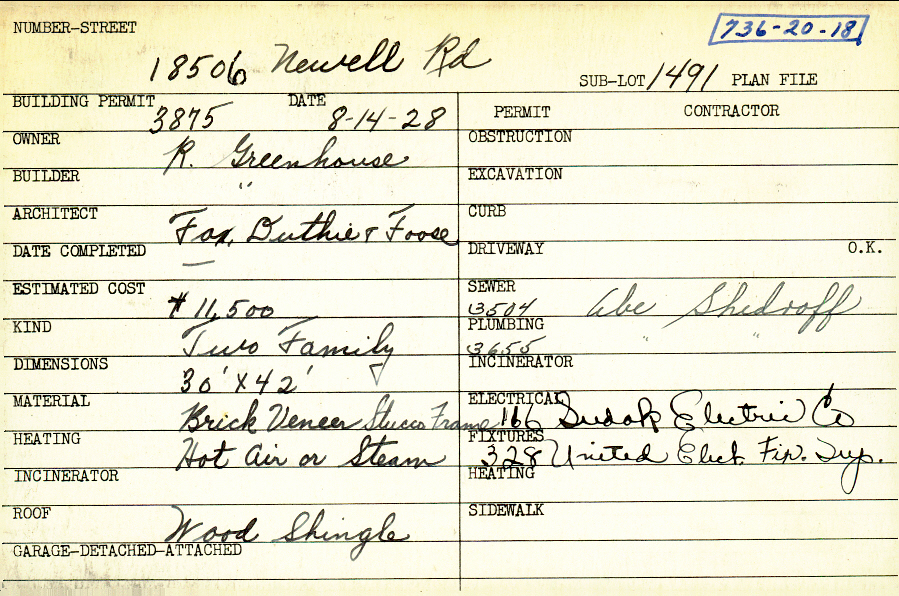 NUMBER-STREET
736-20-18
18506 Newell Rd
SUB-LOT 1491 PLAN FILE
BUILDING PERMIT 3875 DATE 8-14-28
PERMIT CONTRACTOR
OWNER R. Greenhouse
OBSTRUCTION
BUILDER "
EXCAVATION
ARCHITECT Fox, Duthie & Foose
CURB
DATE COMPLETED —
DRIVEWAY O.K.
ESTIMATED COST $11,500
SEWER 3504 Abe Shedroff
KIND Two Family
PLUMBING 3655 " "
DIMENSIONS 30' X 42'
INCINERATOR
MATERIAL Brick Veneer Stucco Frame
ELECTRICAL 166 Sudak Electric Co
HEATING Hot Air or Steam
FIXTURES 328 United Elect. Fix. Sup.
INCINERATOR
HEATING
ROOF Wood Shingle
SIDEWALK
GARAGE-DETACHED-ATTACHED